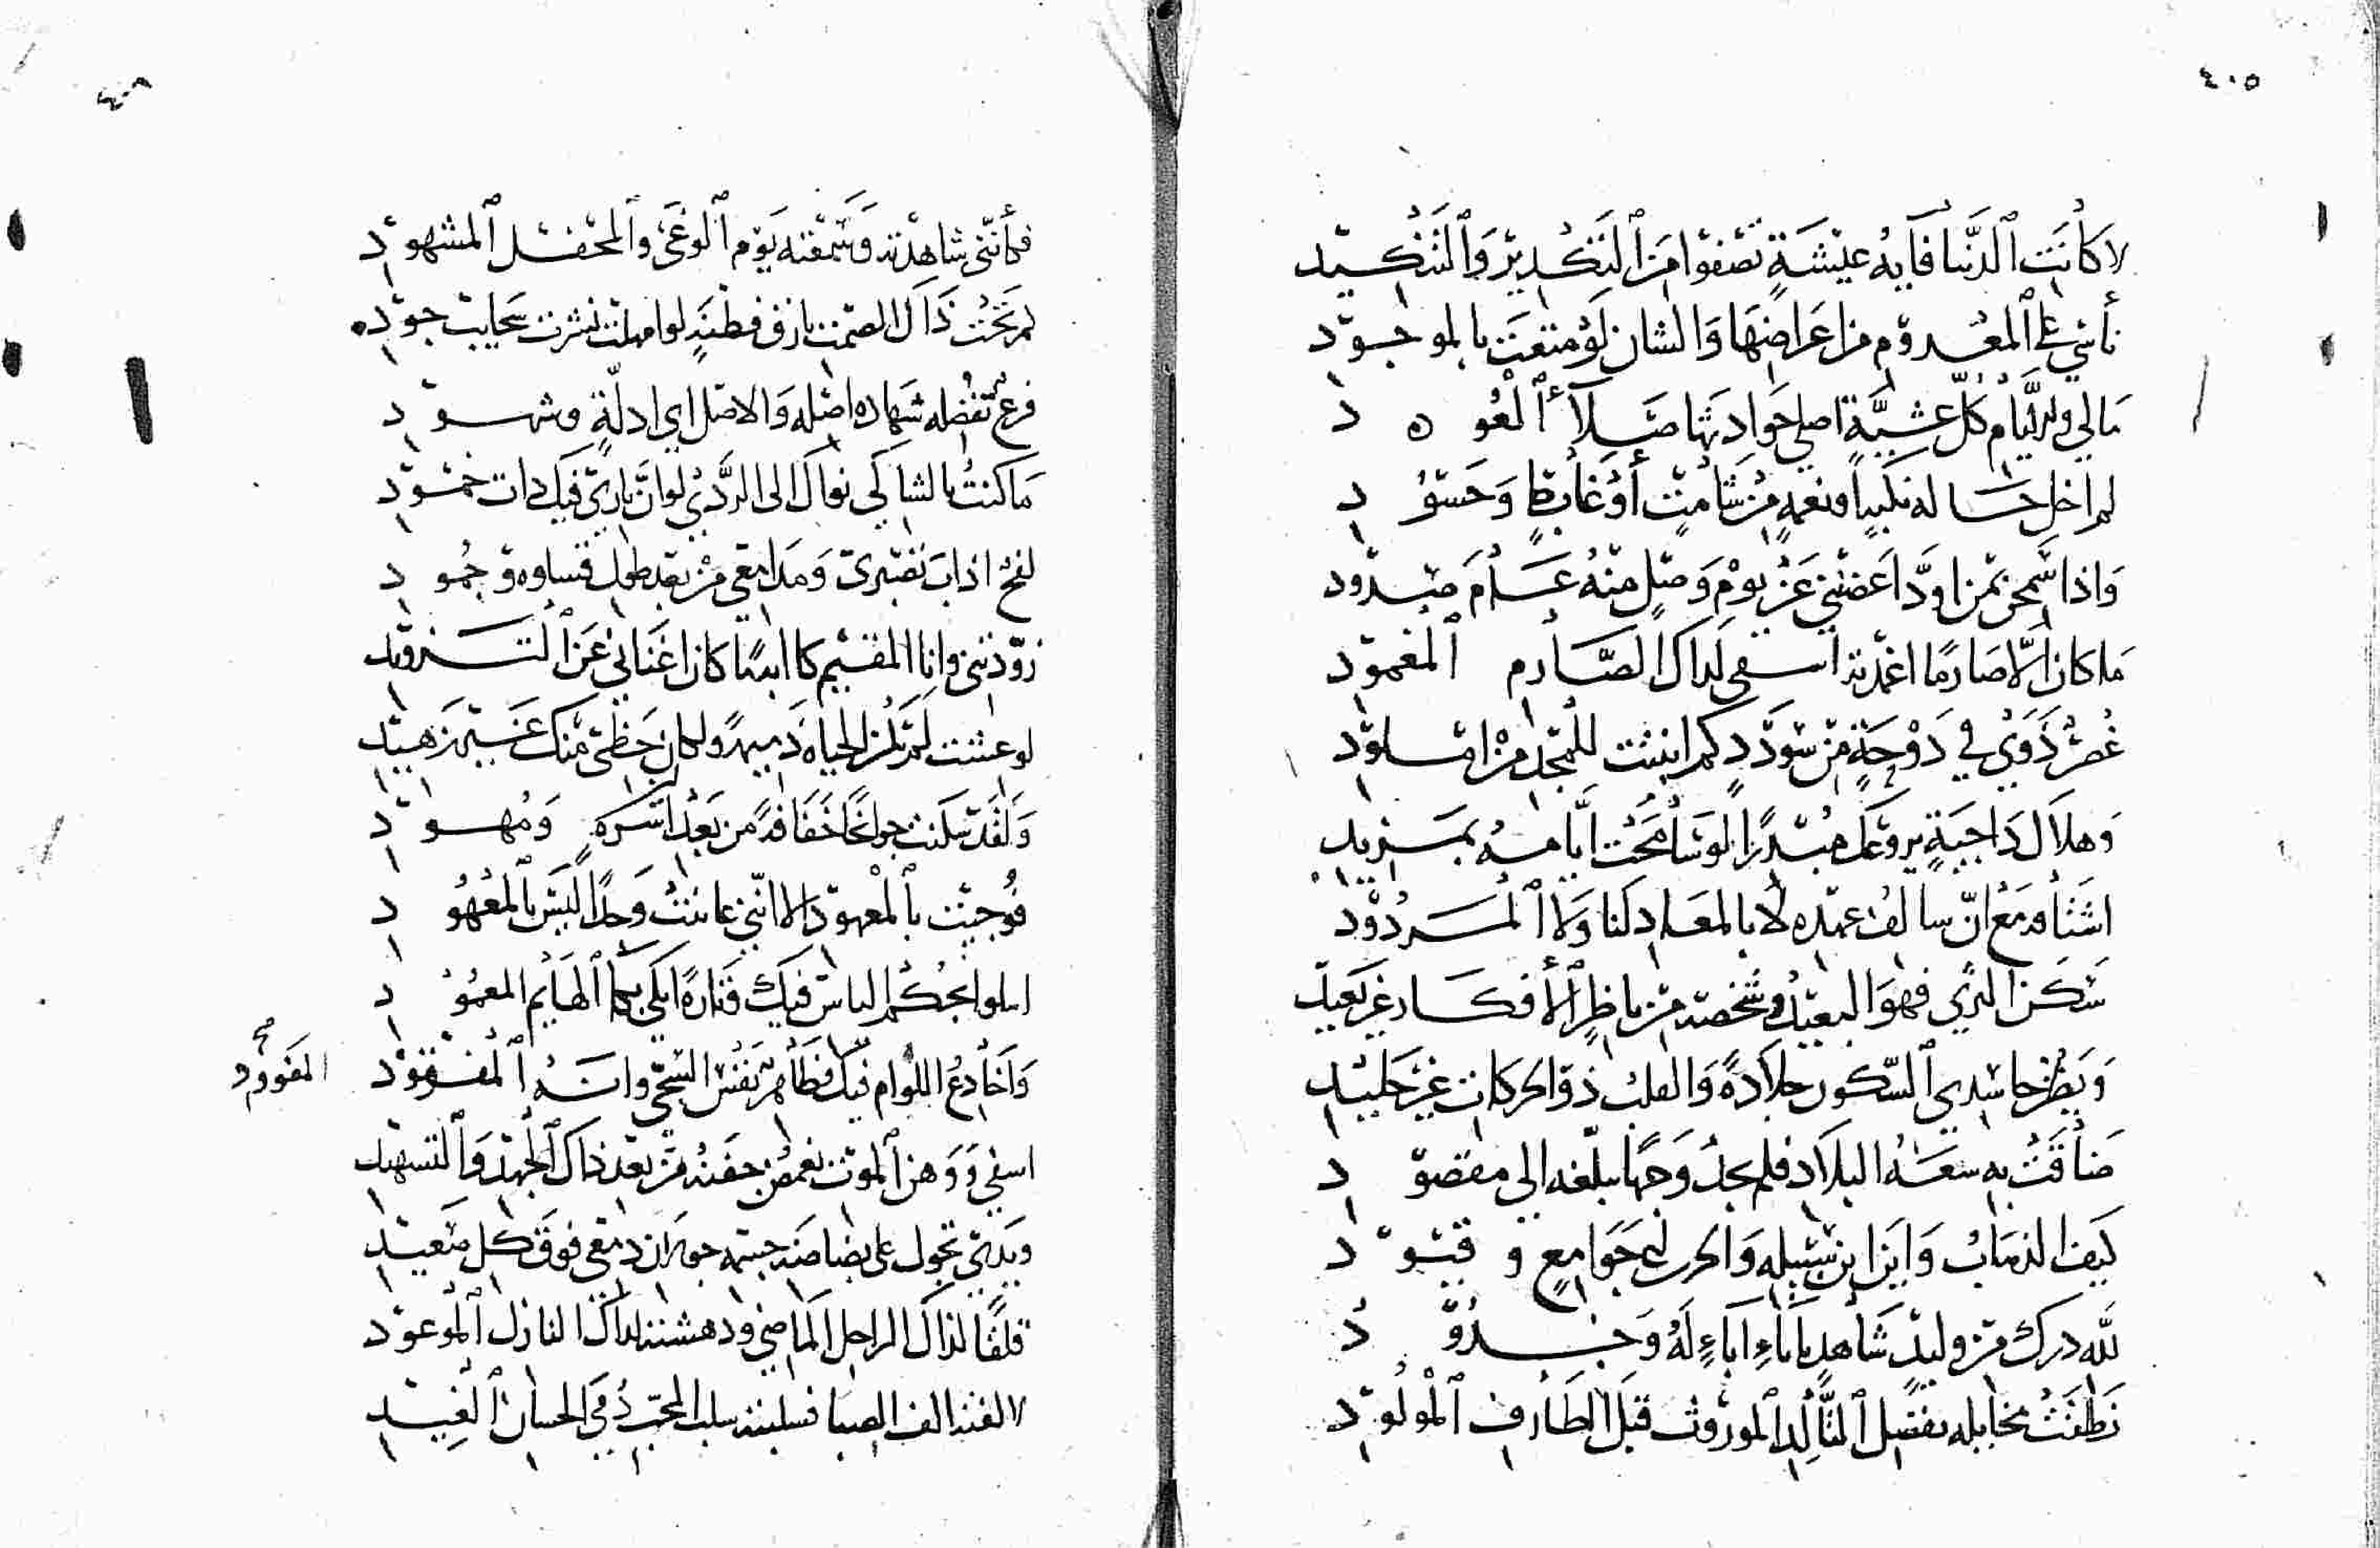 ٤٠٥
لا كانت الدنيا فأية عيشة تصفوا من التكدير والتنكيد
تأسي على المعدوم من اعراضها والشان لو متعت بالموجود
مالي وللأيام كل عشية اصلي حوادثها صلاء العود
لم اخل حساله نكبا ونعمة من شامت أو غابط وحسود
واذا سمحن بمن اود اعضنني عن يوم وصل منه عام صدود
ما كان الا صارما اغمدته اسفى لذاك الصارم المغمود
غصن ذوى في دوحة من سودد كم انبتت للمجد من املود
وهلال داجية يروعك مبدرا لو سامحت ايامه بمزيد
اشتاقه مع ان سالف عهده لا بالمعاد لنا ولا المردود
سكن الثرى فهو البعيد وشخصه من ناظر الأفكار غير بعيد
ويظن حاسدي السكون جلادة والقلب ذو الحركات غير جليد
ضاقت به سعة البلاد فلم يجد وجها يبلغه الى مقصود
كيف الذهاب واين اين سبيله والحزن جوامع وقيود
لله درك من وليد شاهد باباء اباء له وجدود
نطقت مخايله بفضل التالد الموروث قبل الطارف المولود
٤٠٦
فكأنني شاهدته وسمعته يوم الوغى والمحفل المشهود
لم تخف ذاك الصمت بارق فطنة لو امهلت نثرت سحايب جود
فرع بفضله شهادة اصله والاصل اي ادلة وشهود
ما كنت بالشاكي نواك الى الردى لو ان ناري فيك ذات خمود
لفح اذاب تصبري ومدامعي من بعد طول قساوة وجمود
زودتني وانا المقيم كابها ما كان اغناني عن التزويد
لو عشت لم تكن الحياة ذميمة ولكان حظي منك غير زهيد
ولقد سكنت جوانحا خفاقة من بعد اسرة ومهود
فوجئت بالمعهود الا انني عاينت وجدا ليس بالمعهود
اسلوا بحكم الياس فيك وتارة ابكي بكاء الهايم المعمود
واخادع اللوام فيك فظاهر نفس الشجي وانه المفوود
المفوود صح
اسفي ووهن الموت يغمض جفنه من بعد ذاك الجهد والتسهيد
ويدي تجول على بضاضة جسمه جولان دمعي فوق كل صعيد
قلقا لذاك الراحل الماضي ودهشته لذاك النازل الموعود
لا لفته الف الصبا فسلبته سلب المحب دمى الحسان الغيد